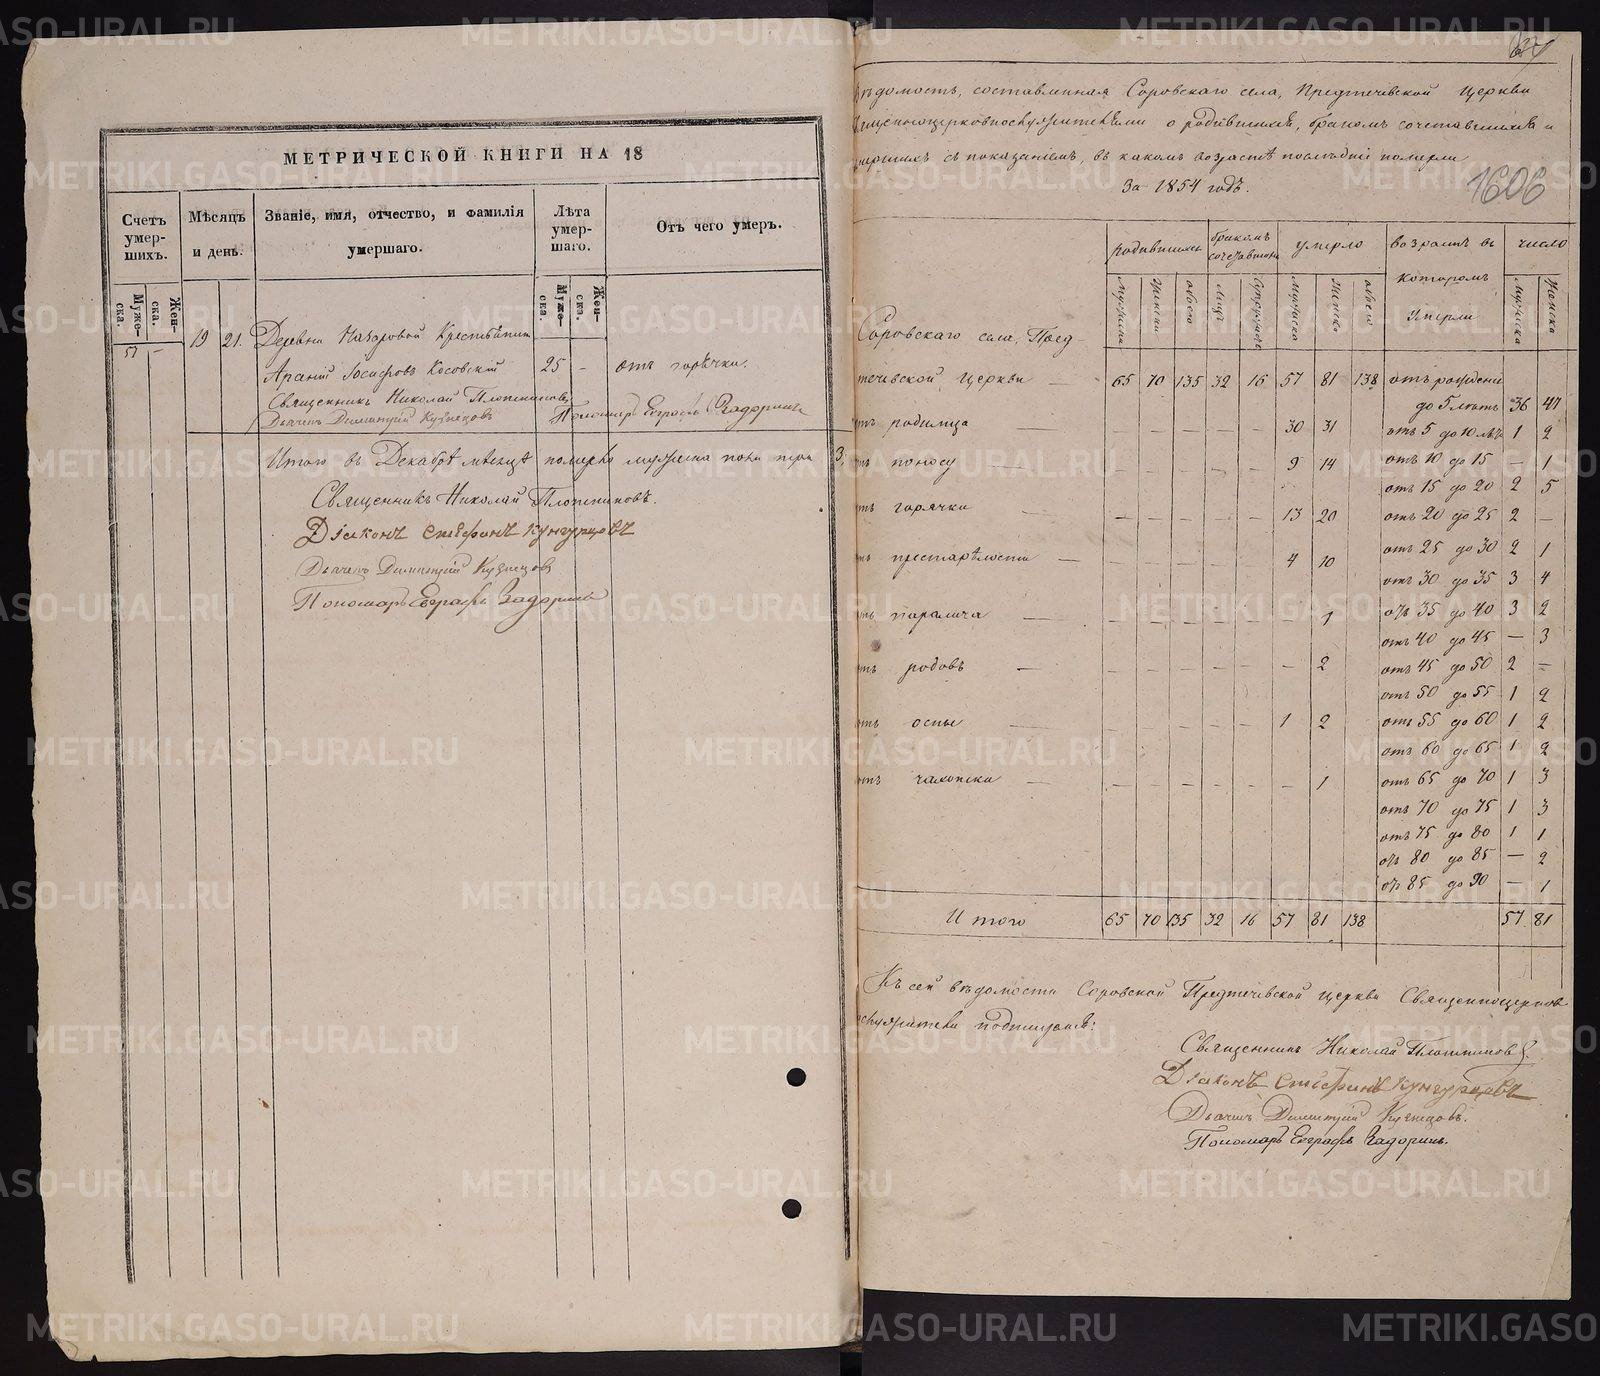 МЕТРИЧЕСКОЙ КНИГИ НА 18
Счетъ умер-шихъ.
Мѣсяцъ и день.
Званіе, имя, отчество, и фамилія умершаго.
Лѣта умер-шаго.
Отъ чего умеръ.
Муже-ска.
Жен-ска.
Муже-ска.
Жен-ска.
57 — 19 21. Деревни Назаровой Крестьянин
Осифовъ Косовскій 25 - отъ горячки.
Священникъ Николай Плотниковъ
Дьячекъ Димитрій Кузнецовъ Пономарь Евграфъ Задоринъ
Итого въ Декабрѣ мѣсяцѣ померло мужеска пола три 3,
Священникъ Николай Плотниковъ.
Діаконъ Стефанъ Кунгурцовъ
Дьячекъ Димитрій Кузнецовъ
Пономарь Евграфъ Задоринъ
1606
ѣдомость, составленная Соровскаго села, Предтечевской Церкви
священноцерковнослужителями о родившихся, бракомъ сочетавшихся и
умершихъ съ показаніемъ, въ какомъ возрастѣ послѣдніе померли
За 1854 годъ.
родившихся
бракомъ сочетавшихся
умерло
возрастъ въ которомъ умерли
число
Соровскаго села, Пред-
течевской Церкви — 65 70 135 32 16 57 81 138 отъ рожденія
до 5 лѣтъ 36 47
отъ родимца — 30 31 отъ 5 до 10 лѣтъ 1 2
отъ поносу — 9 14 отъ 10 до 15 — 1
отъ 15 до 20 2 5
отъ горячки — 13 20 отъ 20 до 25 2 —
отъ престарѣлости — 4 10 отъ 25 до 30 2 1
отъ 30 до 35 3 4
отъ паралича — 1 отъ 35 до 40 3 2
отъ 40 до 45 — 3
отъ родовъ — 2 отъ 45 до 50 2 —
отъ 50 до 55 1 2
отъ оспы — 1 2 отъ 55 до 60 1 2
отъ 60 до 65 1 2
отъ чахотки — 1 отъ 65 до 70 1 3
отъ 70 до 75 1 3
отъ 75 до 80 1 1
отъ 80 до 85 — 2
отъ 85 до 90 — 1
Итого 65 70 135 32 16 57 81 138 57 81
Къ сей вѣдомости Соровской Предтечевской церкви Священноцерков
нослужители подписуемся:
Священникъ Николай Плотниковъ.
Діаконъ Стефанъ Кунгурцовъ
Дьячекъ Димитрій Кузнецовъ.
Пономарь Евграфъ Задоринъ.
METRIKI.GASO-URAL.RU